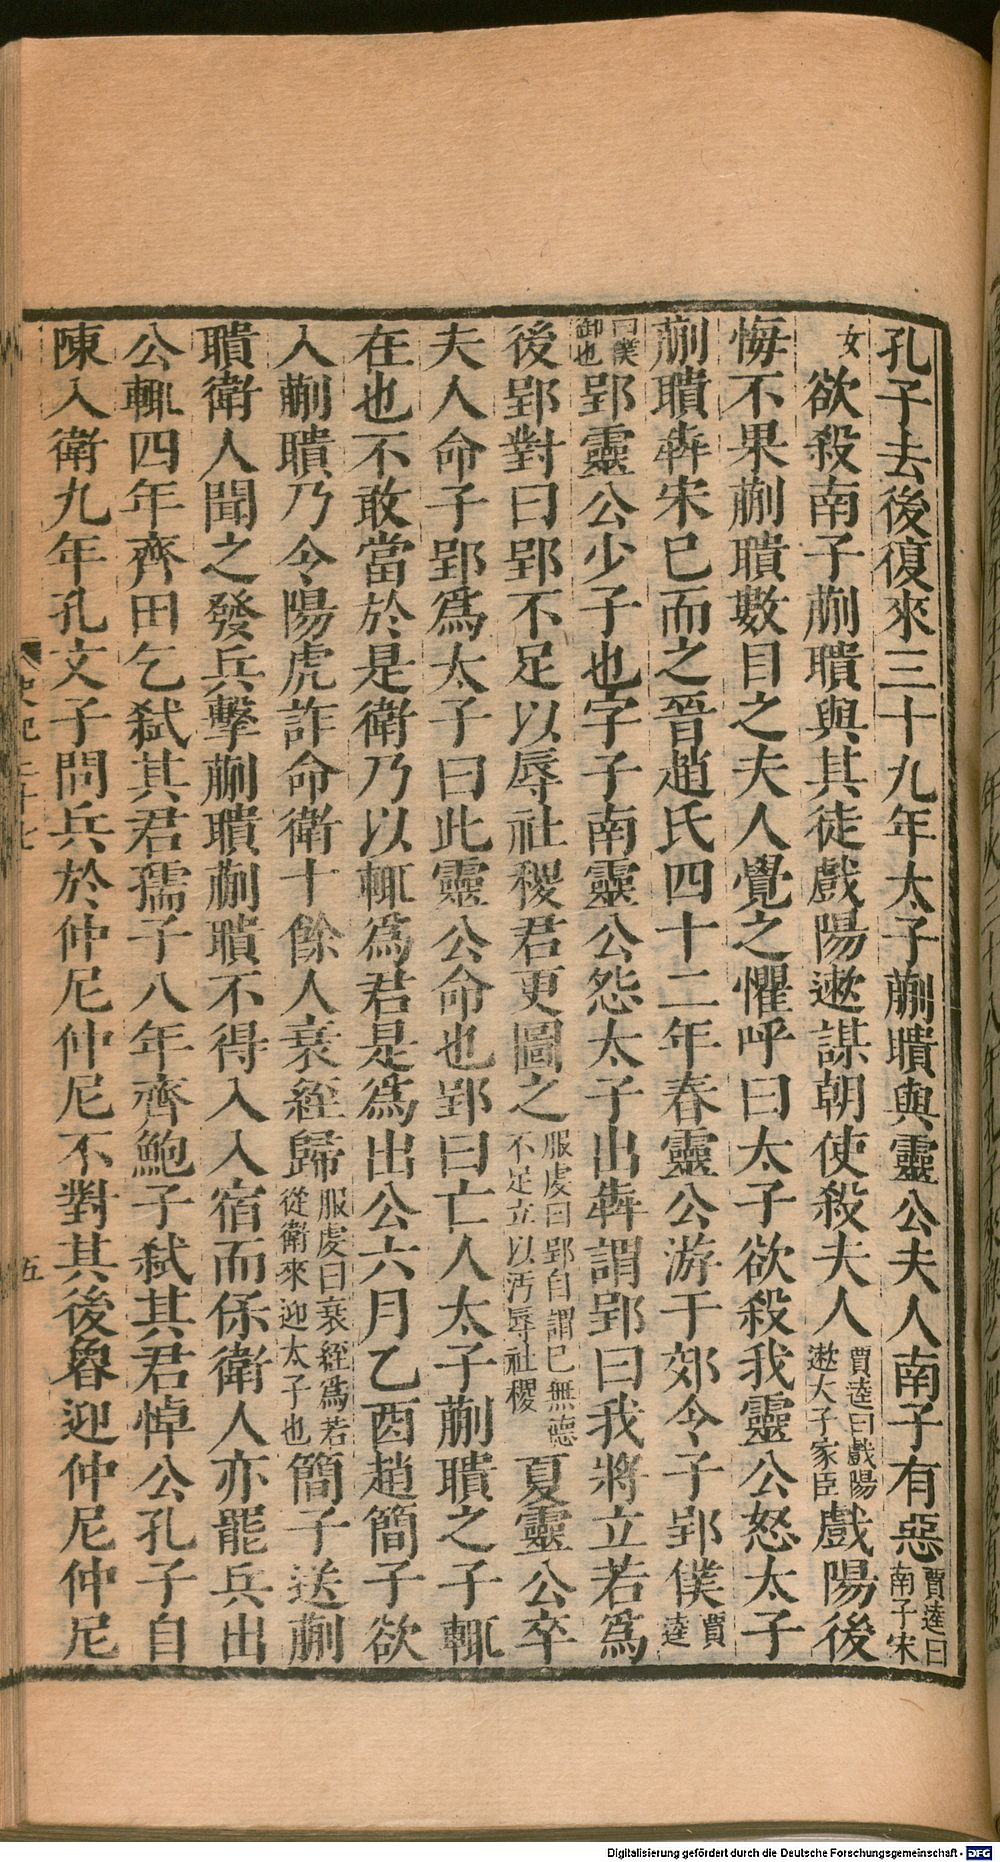 孔子去後復來三十九年太子蒯聵與靈公夫人南子有惡賈逵曰南子宋
女欲殺南子蒯聵與其徒戲陽遬謀朝使殺夫人賈逵曰戲陽遬太子家臣戲陽後
悔不果蒯聵數目之夫人覺之懼呼曰太子欲殺我靈公怒太子
蒯聵犇宋已而之晉趙氏四十二年春靈公游于郊令子郢僕賈逵
曰僕御也郢靈公少子也字子南靈公怨太子出犇謂郢曰我將立若爲
後郢對曰郢不足以辱社稷君更圖之服虔曰郢自謂已無德不足立以汚辱社稷夏靈公卒
夫人命子郢爲太子曰此靈公命也郢曰亡人太子蒯聵之子輒
在也不敢當於是衛乃以輒爲君是爲出公六月乙酉趙簡子欲
入蒯聵乃令陽虎詐命衛十餘人衰絰歸服虔曰衰絰爲若從衛來迎太子也簡子送蒯
聵衛人聞之發兵擊蒯聵蒯聵不得入入宿而保衛人亦罷兵出
公輒四年齊田乞弒其君孺子八年齊鮑子弒其君悼公孔子自
陳入衛九年孔文子問兵於仲尼仲尼不對其後魯迎仲尼仲尼
史記三十七
五
Digitalisierung gefördert durch die Deutsche Forschungsgemeinschaft - DFG